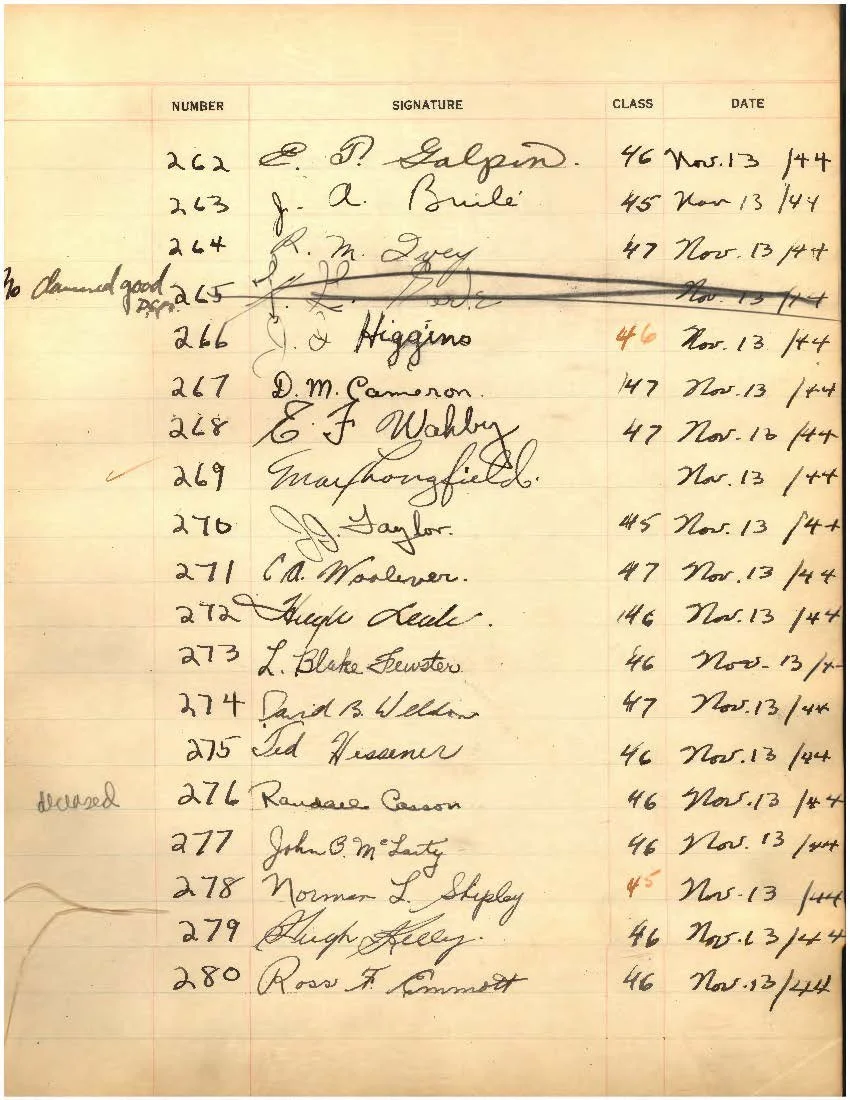 NUMBER SIGNATURE CLASS DATE
262 E. P. Galpin. 46 Nov. 13 /44
263 J. A. Brulé 45 Nov 13 /44
264 R. M. Ivey 47 Nov. 13 /44
No damned good 265 Nov. 13 /44
266 J. Higgins 46 Nov. 13 /44
267 D. M. Cameron. 47 Nov. 13 /44
268 E F Wahby 47 Nov. 13 /44
269 Max Longfield. Nov. 13 /44
270 Taylor. 45 Nov. 13 /44
271 C A. Woolever. 47 Nov. 13 /44
272 Hugh 46 Nov. 13 /44
273 L. Blake Fewster 46 Nov. 13 /4
274 David B. Weldon 47 Nov. 13 /44
275 Ted Hessener 46 Nov. 13 /44
deceased 276 Randall Casson 46 Nov. 13 /44
277 John B. McLarty 46 Nov. 13 /44
278 Norman L. Shipley 45 Nov. 13 /44
279 Hugh Kelly. 46 Nov. 13 /44
280 Ross F. Emmott 46 Nov. 13 /44